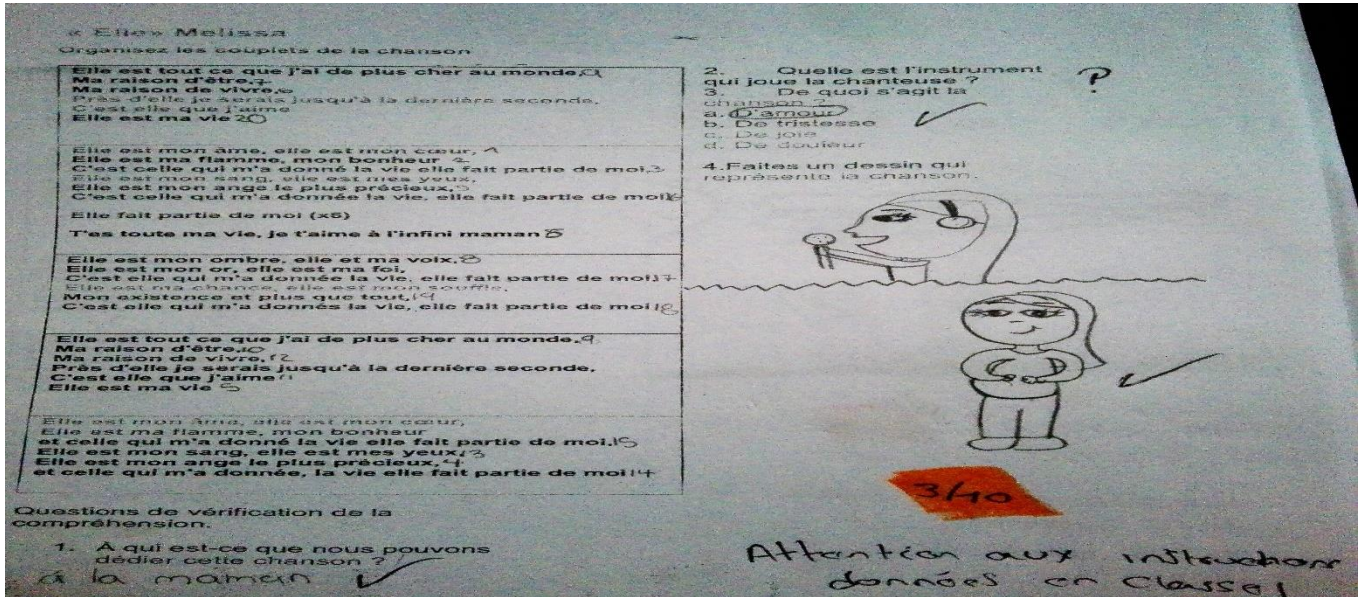 « Elle» Melissa
Organisez les couplets de la chanson
Elle est tout ce que j'ai de plus cher au monde,
Ma raison d'être,7
Ma raison de vivre,6
Près d'elle je serais jusqu'à la dernière seconde,
C'est elle que j'aime
Elle est ma vie 20
Elle est mon âme, elle est mon cœur, 1
Elle est ma flamme, mon bonheur 2
C'est celle qui m'a donné la vie elle fait partie de moi,3
Elle est mon sang, elle est mes yeux,
Elle est mon ange le plus précieux,
C'est celle qui m'a donné la vie, elle fait partie de moi
Elle fait partie de moi (x6)
T'es toute ma vie, je t'aime à l'infini maman
Elle est mon ombre, elle et ma voix,8
Elle est mon or, elle est ma foi,
C'est elle qui m'a donnée la vie, elle fait partie de moi,17
Elle est ma chance, elle est mon souffle,
Mon existence et plus que tout,19
C'est elle qui m'a donnés la vie, elle fait partie de moi 18
Elle est tout ce que j'ai de plus cher au monde,9
Ma raison d'être,10
Ma raison de vivre,12
Près d'elle je serais jusqu'à la dernière seconde,
C'est elle que j'aime 11
Elle est ma vie 5
Elle est mon âme, elle est mon cœur,
Elle est ma flamme, mon bonheur
et celle qui m'a donné la vie elle fait partie de moi,15
Elle est mon sang, elle est mes yeux,13
Elle est mon ange le plus précieux,4
et celle qui m'a donnée, la vie elle fait partie de moi 14
Questions de vérification de la
compréhension.
1. À qui est-ce que nous pouvons
dédier cette chanson ?
à la maman
2. Quelle est l'instrument
qui joue la chanteuse ?
?
3. De quoi s'agit la
chanson ?
a. D'amour
b. De tristesse
c. De joie
d. De douleur
4.Faites un dessin qui
représente la chanson.
3/10
Attention aux instructions
données en Classe!